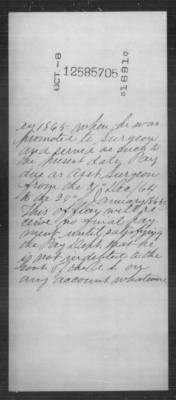 OCT.-8
12585705
1891
ry 1865 when he was
promoted to Surgeon
and served as such to
the present date. Pay
due as Asst. Surgeon
from the 31st Dec. '64
to the 30th January 1865.
This officer will re
ceive no final pay
ment until satisfying
the Pay Dept. that he
is not indebted to the
Govt. of the U. S. on
any account whatsoever